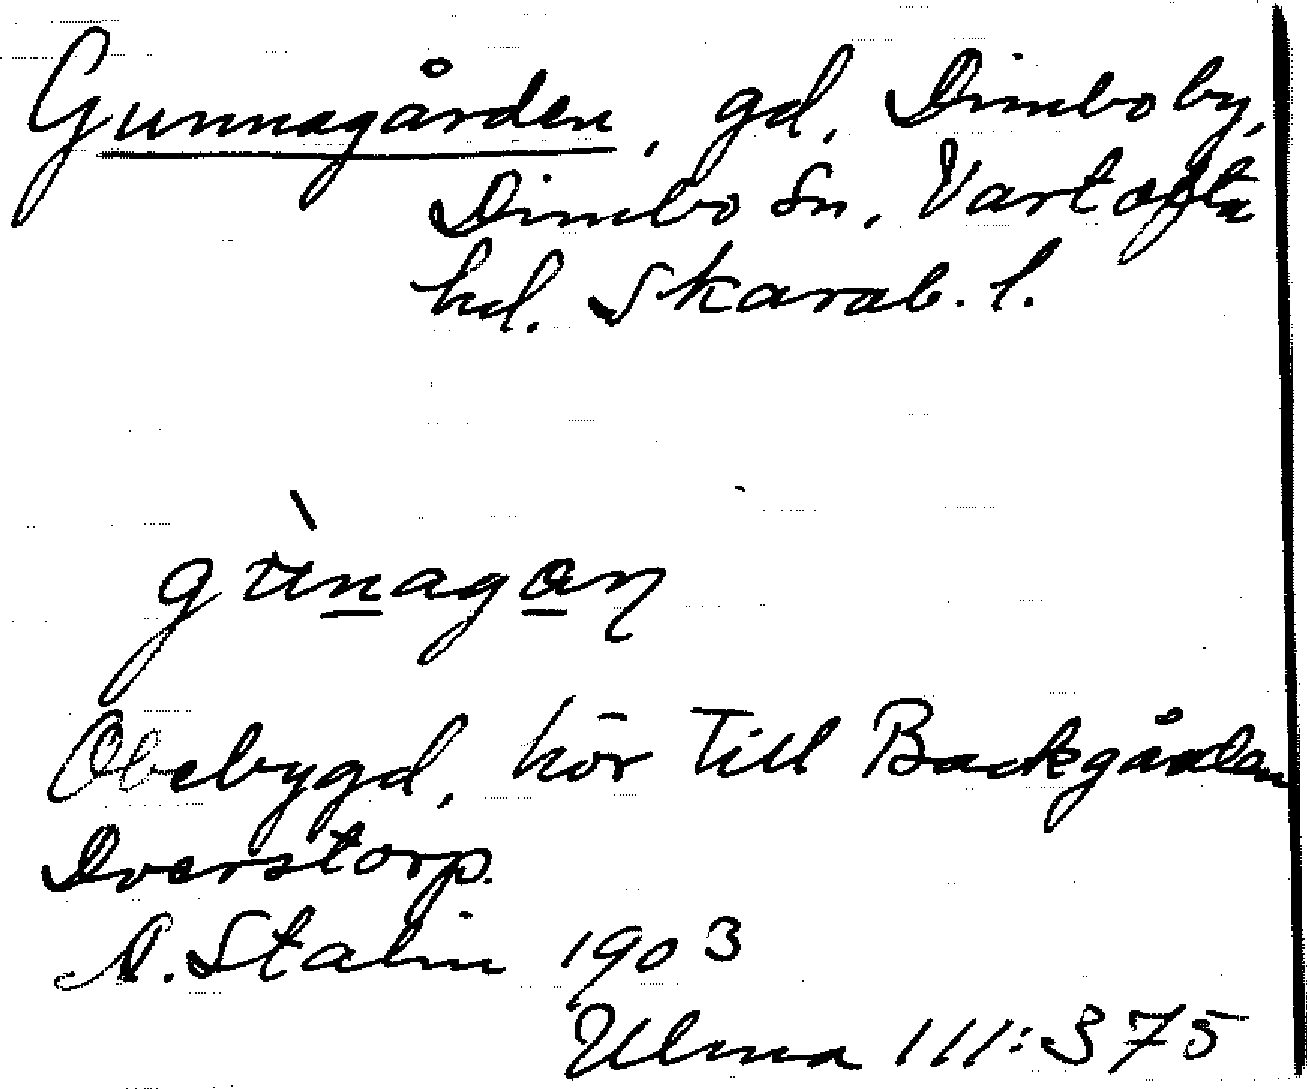 Gunnagården, gd, Dimbo by,
Dimbo sn, Vartofta
hd. Skarab. l.
gùnagaɳ
Obebygd, hör till Backgården
Dverstorp.
A. Stalin 1903
Ulma 111:375